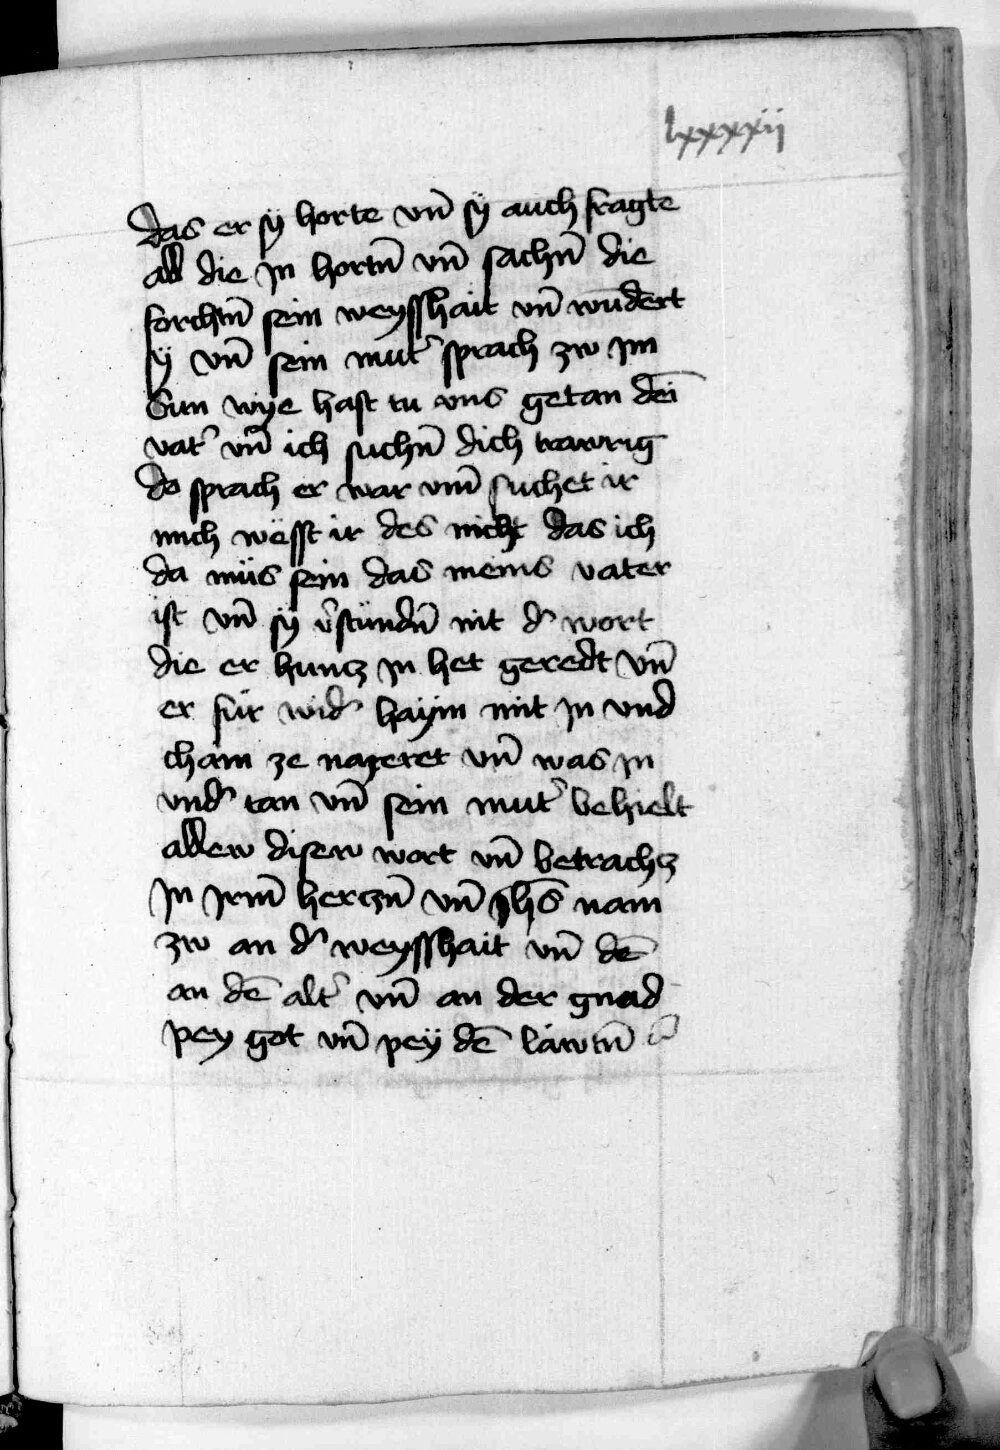 lxxxxii
das er sÿ horte vn̄ sÿ auch fragte
all die jn hortn̄ vn̄ sachn̄ die
forchtn̄ sein weysshait vn̄ wund̄ert
sÿ vn̄ sein mut̾ sprach zw jm
Sun wye hast tu vns getan dei̅
vat̾ vn̄ ich suchn̄ dich trawrig
do sprach er war vm̄ suchet ir
mich wësst ir des nicht das ich
da müs sein das meins vater
ist vn̄ sÿ v̾stündn̄ nit d̾ wort
die er huncz jn het geredt vn̄
er für wid̾ haÿm mit jn vnd
cham ze nazeret vn̄ was jn
vnd̾ tan vn̄ sein mut̾ behielt
allew disew wort vn̄ betrachcz
jn jrm̄ herczn̄ vn̄ jhs̄ nam
zw an d̾ weysshait vn̄ de̅
an de̅ alt̾ vn̄ an der gnad
pey got vn̄ pey de̅ läwtn̄